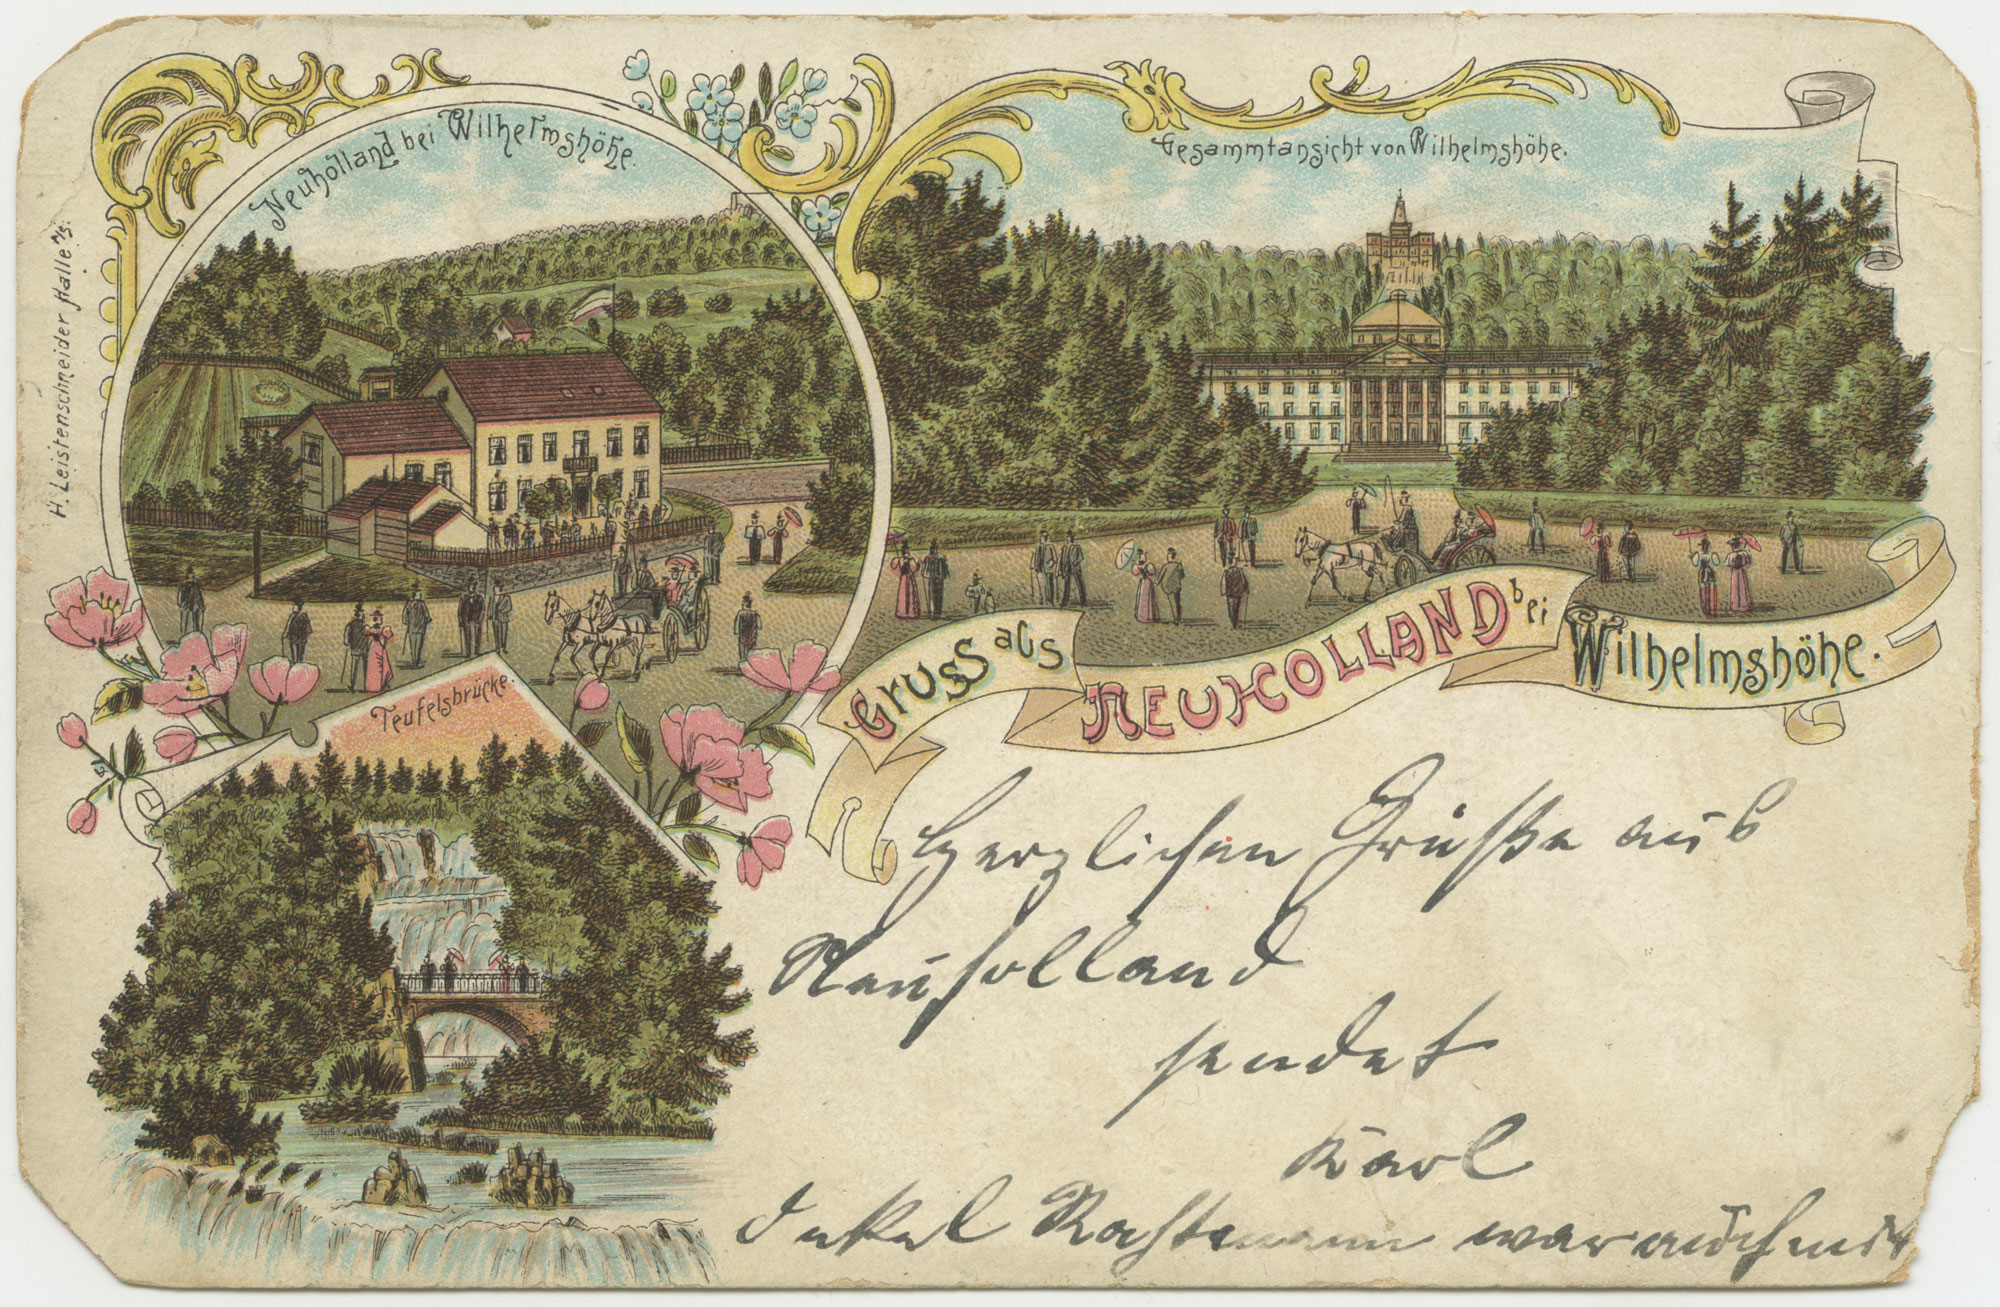 Neuholland bei Wilhelmshöhe.
Gesammtansicht von Wilhelmshöhe.
H. Leistenschneider Halle a/S.
Gruss aus NEUHOLLAND bei Wilhelmshöhe.
Teufelsbrücke.
Herzlichen Grüße aus
Neuholland
sendet
Karl
war auch mit